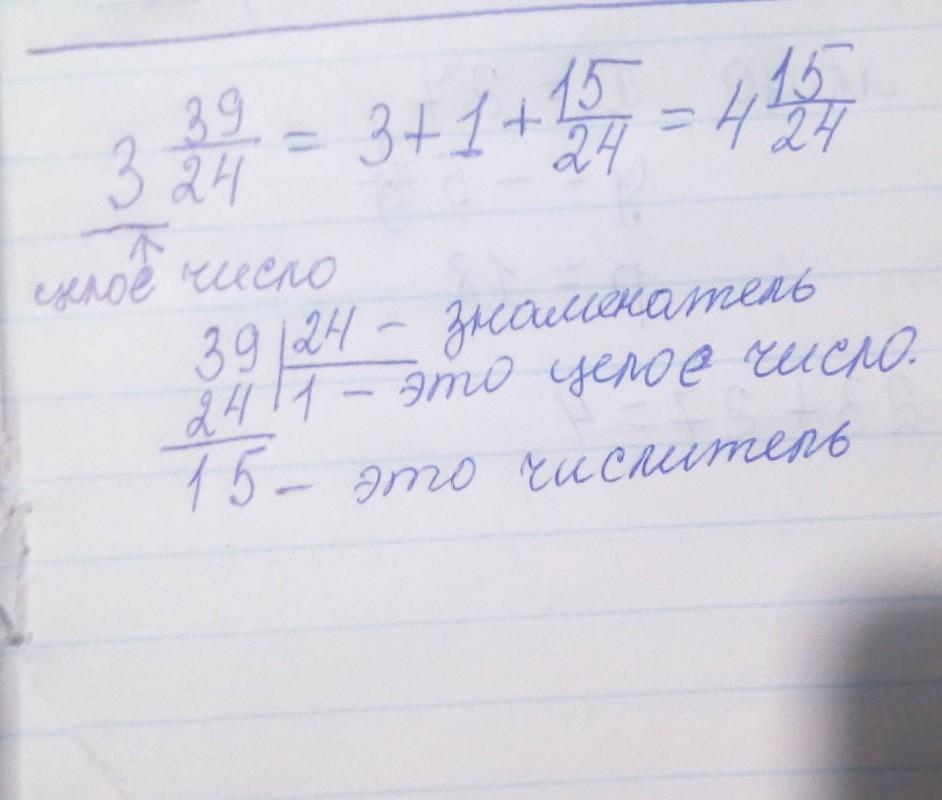 3 39/24 = 3+1+15/24 = 4 15/24
целое число
39 | 24 - знаменатель
24 | 1 - это целое число.
15 - это числитель